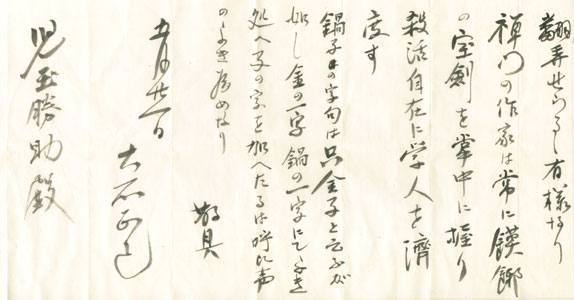 翻弄せらるゝ有様なり
禅门の作家は常に鏌鎁
の宝剣を掌中に握り
殺活自在に学人を済
度す
鍋子の字句は只金子と云ふが
如し金の一字鍋の一字にてよき
処へ子の字を加へたるは呼に声
のよき為めなり
敬具
五月廿一日
大石正己
児玉勝助殿